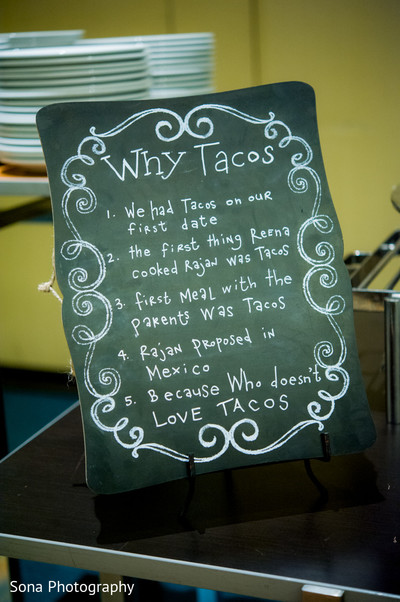 Why Tacos
1. We had Tacos on our
first date
2. the first thing Reena
cooked Rajan was Tacos
3. first Meal with the
parents was Tacos
4. Rajan proposed in
Mexico
5. Because Who doesn't
LOVE TACOS
Sona Photography